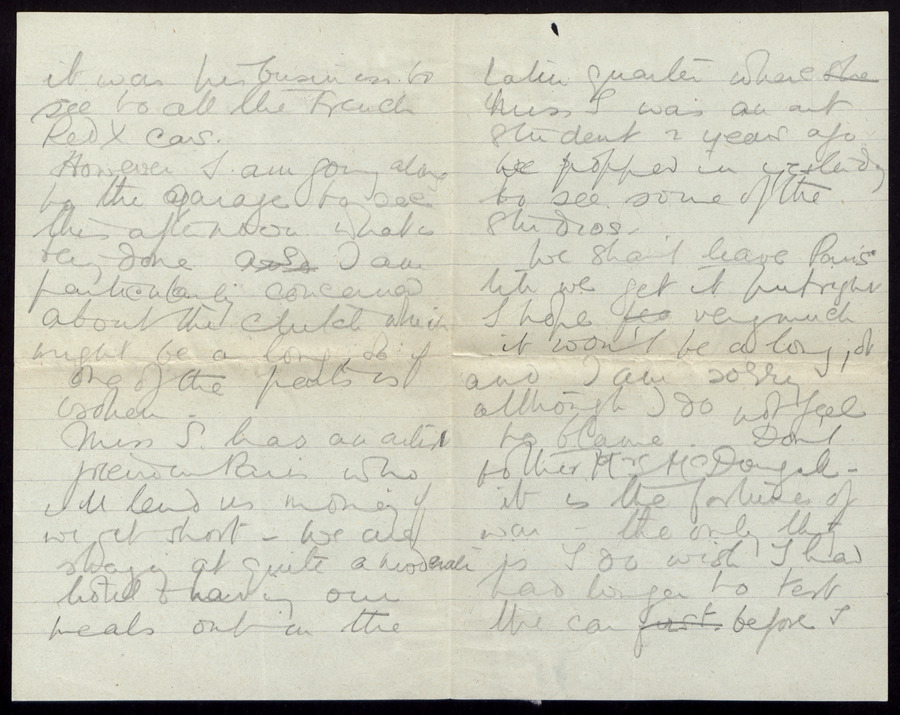 it was his business to
see to all the French
Red X cars.
However I am going along
to the garage to see
this afternoon what is
being done and I am
particularly concerned
about the clutch which
might be a long job if
one of the parts is
broken -
Miss S. has an artist
friend in Paris who
will lend us money if
we get short - We are
staying at quite a moderate
hotel & having our
meals out in the
Latin quarter where she
Miss S was an art
student 2 years ago
we popped in yesterday
to see some of the
studios.
We shan't leave Paris
till we get it put right
I hope very much
it won't be a long job
and I am sorry
although I do not feel
to blame. Don't
bother Mrs McDougall -
it is the fortunes of
war - the only thing
is I do wish I had
had longer to test
the car first before I